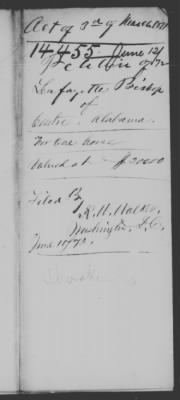 Act of 3rd of March 1871
14455. June 12/72
Petition of
Lafayette Bishop
of
Centre, Alabama.
For One horse
Valued at - $200.00
Filed By
R. H. Walker,
Washington, D.C.
June 10/72.